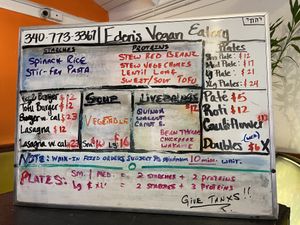 340-773-3367 Eden's Vegan Eatery
STARCHES
SPINACH RICE
STIR-FRY PASTA
PROTEINS
STEW RED BEANZ
STEW VEGE CHUNKS
LENTIL LOAF
SWEET/SOUR TOFU
PLATES
Sm Plate: 12
Med Plate: 17
Lg Plate: $21
XL Plate: $24
Vege Burger $12
Tofu Burger $12
Burger w. Cal $23
Lasagna $12
Lasagna w. cal $23
SOUP
VEGETABLE
Sm $10
Lg $16
LIVE BEINGS
QUINOA
WALNUT
CARROT
CHICKPEA
Pate $5
Roti $15
Cauliflower
Doubles $6
NOTE: WALK-IN FOOD ORDERS SUBJECT TO MINIMUM 10 min. WAIT.
PLATES: SM. / MED. = 2 STARCHES + 2 PROTEINS
Lg & XL = 2 STARCHES + 3 PROTEINS
GIVE TANXS!!